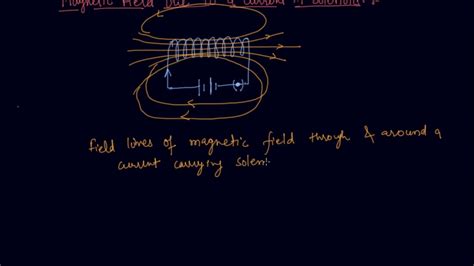 Magnetic Field Due to a Current in Solenoid:
Field lines of magnetic field through & around a
current carrying solen